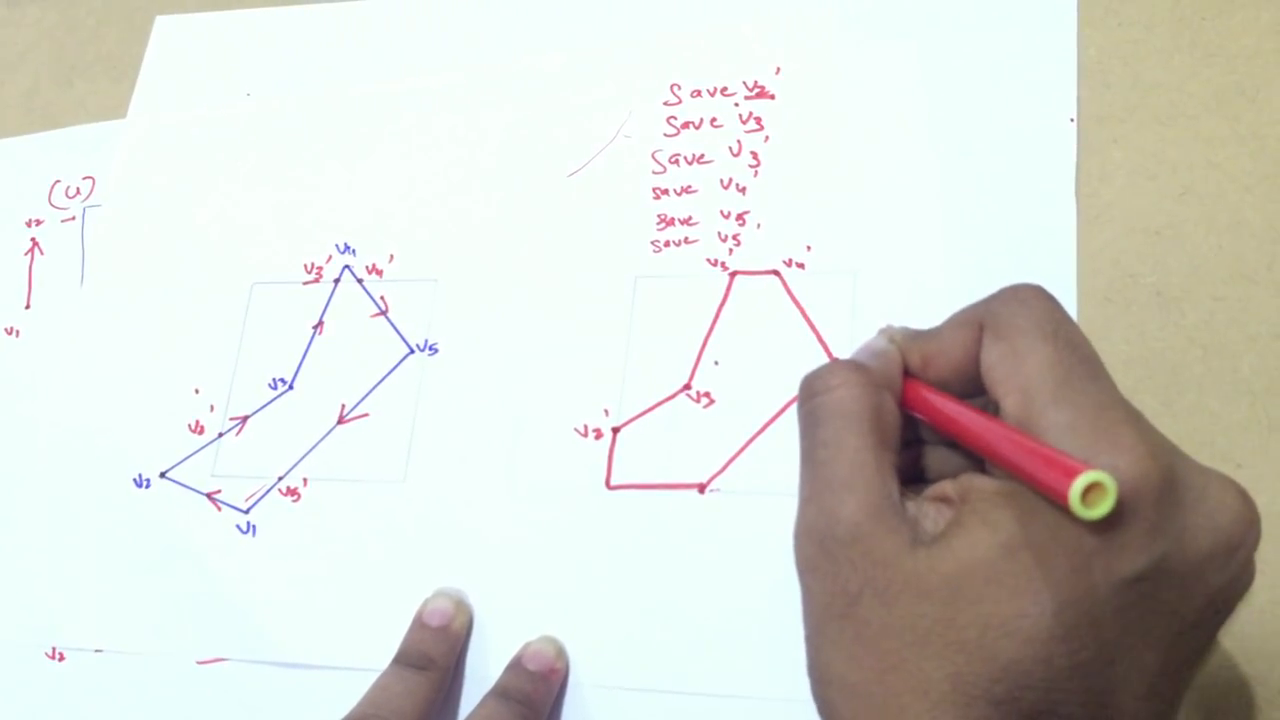 Save v2'
Save v3
Save v3'
save v4'
save v5,
save v5
(4)
v2
v1
v4
v3'
v4'
v5
v3
v2'
v2
v5'
v1
v3'
v4'
v3
v2'
v2